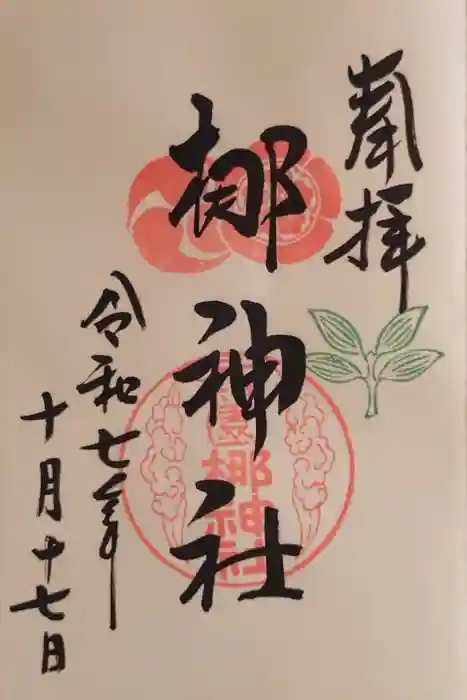 奉拝
梛神社
梛神社
令和七年
十月十七日